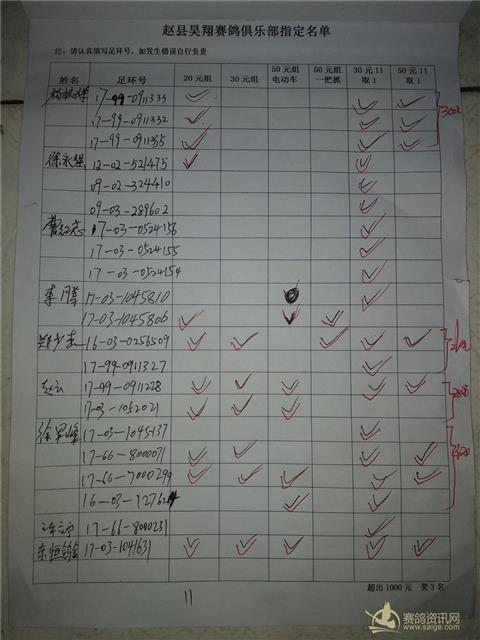 赵县昊翔赛鸽俱乐部指定名单
注：请认真填写足环号，如发生错误自行负责
姓名 足环号 20元组 30元组 50元组电动车 50元组一把抓 30元11取1 50元11取1
17-99-0911333
17-99-0911332
17-99-0911335
徐永强 12-02-521475
09-02-324410
09-03-289602
曹红志 17-03-0524156
17-03-0524155
17-03-0524154
17-03-1045810
17-03-1045806
16-03-0256509
17-99-0911327
赵云 17-99-0911228
17-03-1052021
17-03-1045137
17-66-8000071
17-66-7000299
16-03-12762
17-66-8000231
17-03-1041631
11
超出1000元 奖3名
赛鸽资讯网
www.saige.com